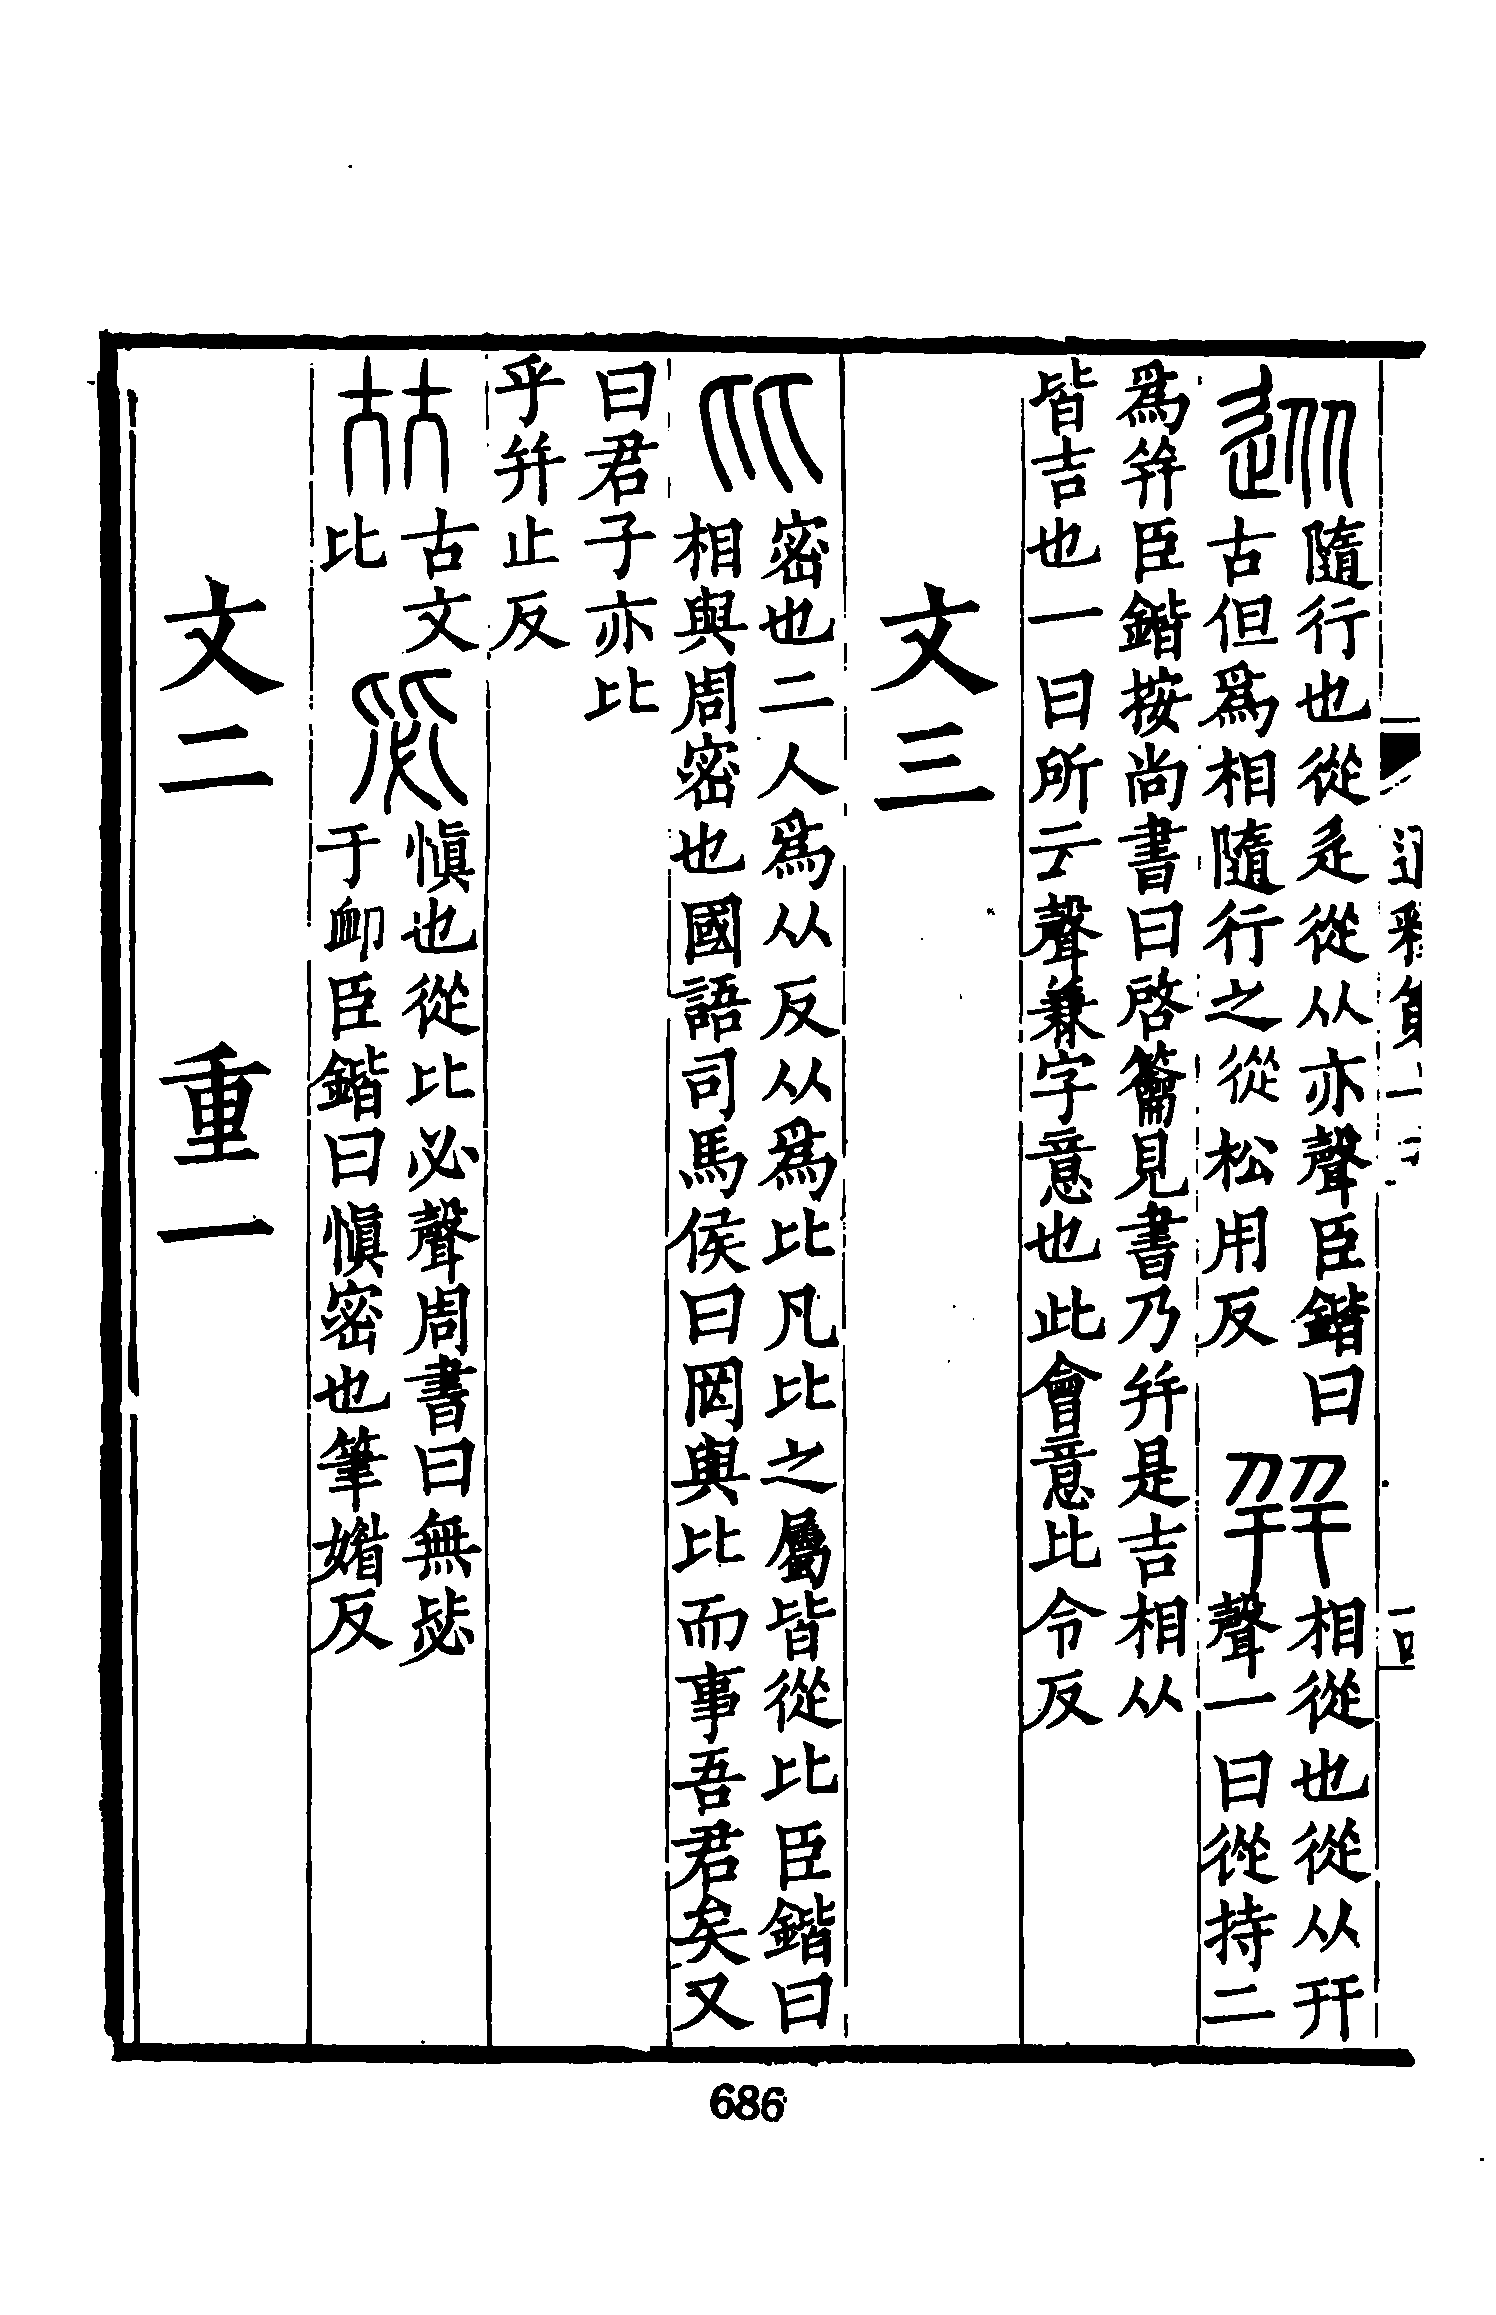 從
隨行也從辵從从亦聲臣鍇曰
古但爲相隨行之從松用反
幷
相從也從从幵
聲一曰從持二
爲幷臣鍇按尚書曰啓籥見書乃幷是吉相从
皆吉也一曰所云聲兼字意也此會意比令反
文三
比
密也二人爲从反从爲比凡比之屬皆從比臣鍇曰
相與周密也國語司馬侯曰罔與比而事吾君矣又
曰君子亦比
乎幷止反
古文
比
毖
愼也從比必聲周書曰無毖
于卹臣鍇曰愼密也筆媚反
文二 重一
686